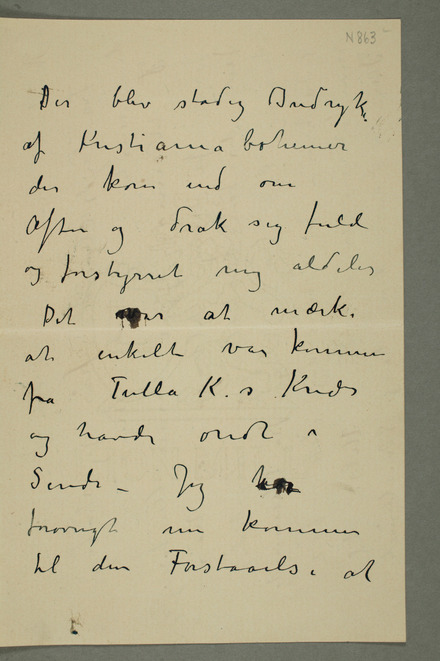 N 863
Der blev stadig Indryk
af Kristiania bohemer
der kom ind om
Aften og drak sig fuld
og forstyrret mig aldeles
Det var at mærke
at enkelte var kommen
fra Tulla K.s Kreds
og havde ondt i
Sinde – Jeg har
forøvrigt nu kommen
til den Forstaaelse at